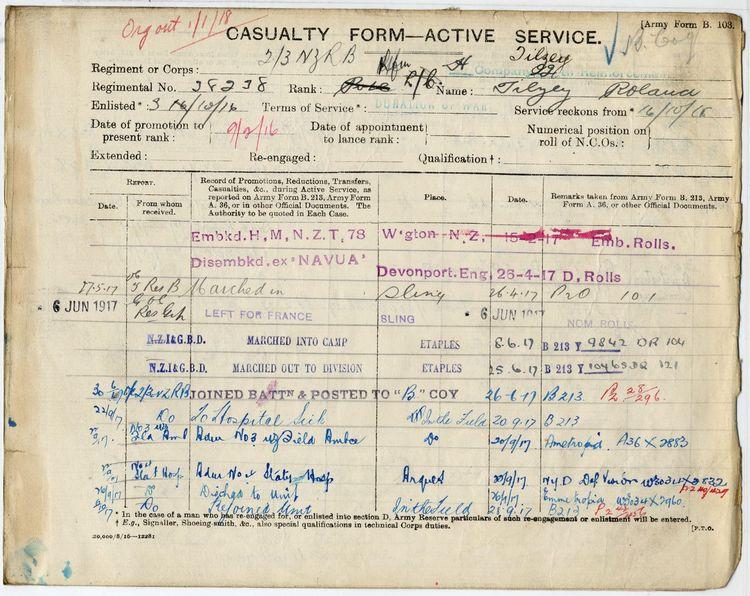 Org out 1/1/18
[Army Form B. 103.
CASUALTY FORM—ACTIVE SERVICE.
B. Coy
Regiment or Corps: 2/3 NZRB
Tilzey
Regimental No. 28238 Rank: Name: Tilzey Roland
DURATION OF WAR
Enlisted* 16/10/16 Terms of Service*: Service reckons from* 16/10/16
Date of promotion to present rank: 9/2/16 Date of appointment to lance rank: Numerical position on roll of N.C.Os:
Extended: Re-engaged: Qualification†:
Report. Record of Promotions, Reductions, Transfers, Casualties, &c., during Active Service, as reported on Army Form B. 213, Army Form A. 36, or in other Official Documents. The Authority to be quoted in Each Case. Place. Date. Remarks taken from Army Form B. 213, Army Form A. 36, or other Official Documents.
Date. From whom received.
Embkd. H, M, N. Z. T, 78 W'gton N. Z, 15-2-17 Emb. Rolls.
Disembkd. ex 'NAVUA' Devonport. Eng, 26-4-17 D, Rolls
17.5.17 Res B Marched in Sling 26.4.17 101
6 JUN 1917 LEFT FOR FRANCE SLING 6 JUN 1917 NOM ROLL
N.Z.I&G.B.D. MARCHED INTO CAMP ETAPLES 8.6.17 B 213 Y 9842 DR 104
N.Z.I&G.B.D. MARCHED OUT TO DIVISION ETAPLES 25.6.17 B 213 Y 10465 DR 121
30/6/17 2/3 NZRB JOINED BATTN & POSTED TO "B." COY 26-6-17 B213 28/296.
22/9/17. Do To Hospital Sick In the Field 20.9.17 B213
No 3 NZ Fld Amb Adm No 3 NZ Field Ambce Do 20/9/17. A36 X 2883
Hosp Adm No Staty Hosp Arques 20/9/17. NYD Def Vision W3034 X 2832
26/9/17 Do Dischgd to Unit 26/9/17. W3034 X 2960.
Do Rejoined Unit In the Field 25.9.17 B213
* In the case of a man who has re-engaged for, or enlisted into section D, Army Reserve particulars of such re-engagement or enlistment will be entered.
† E.g., Signaller, Shoeing-smith, &c., also special qualifications in technical Corps duties. [P.T.O.
20,000/8/16—12281